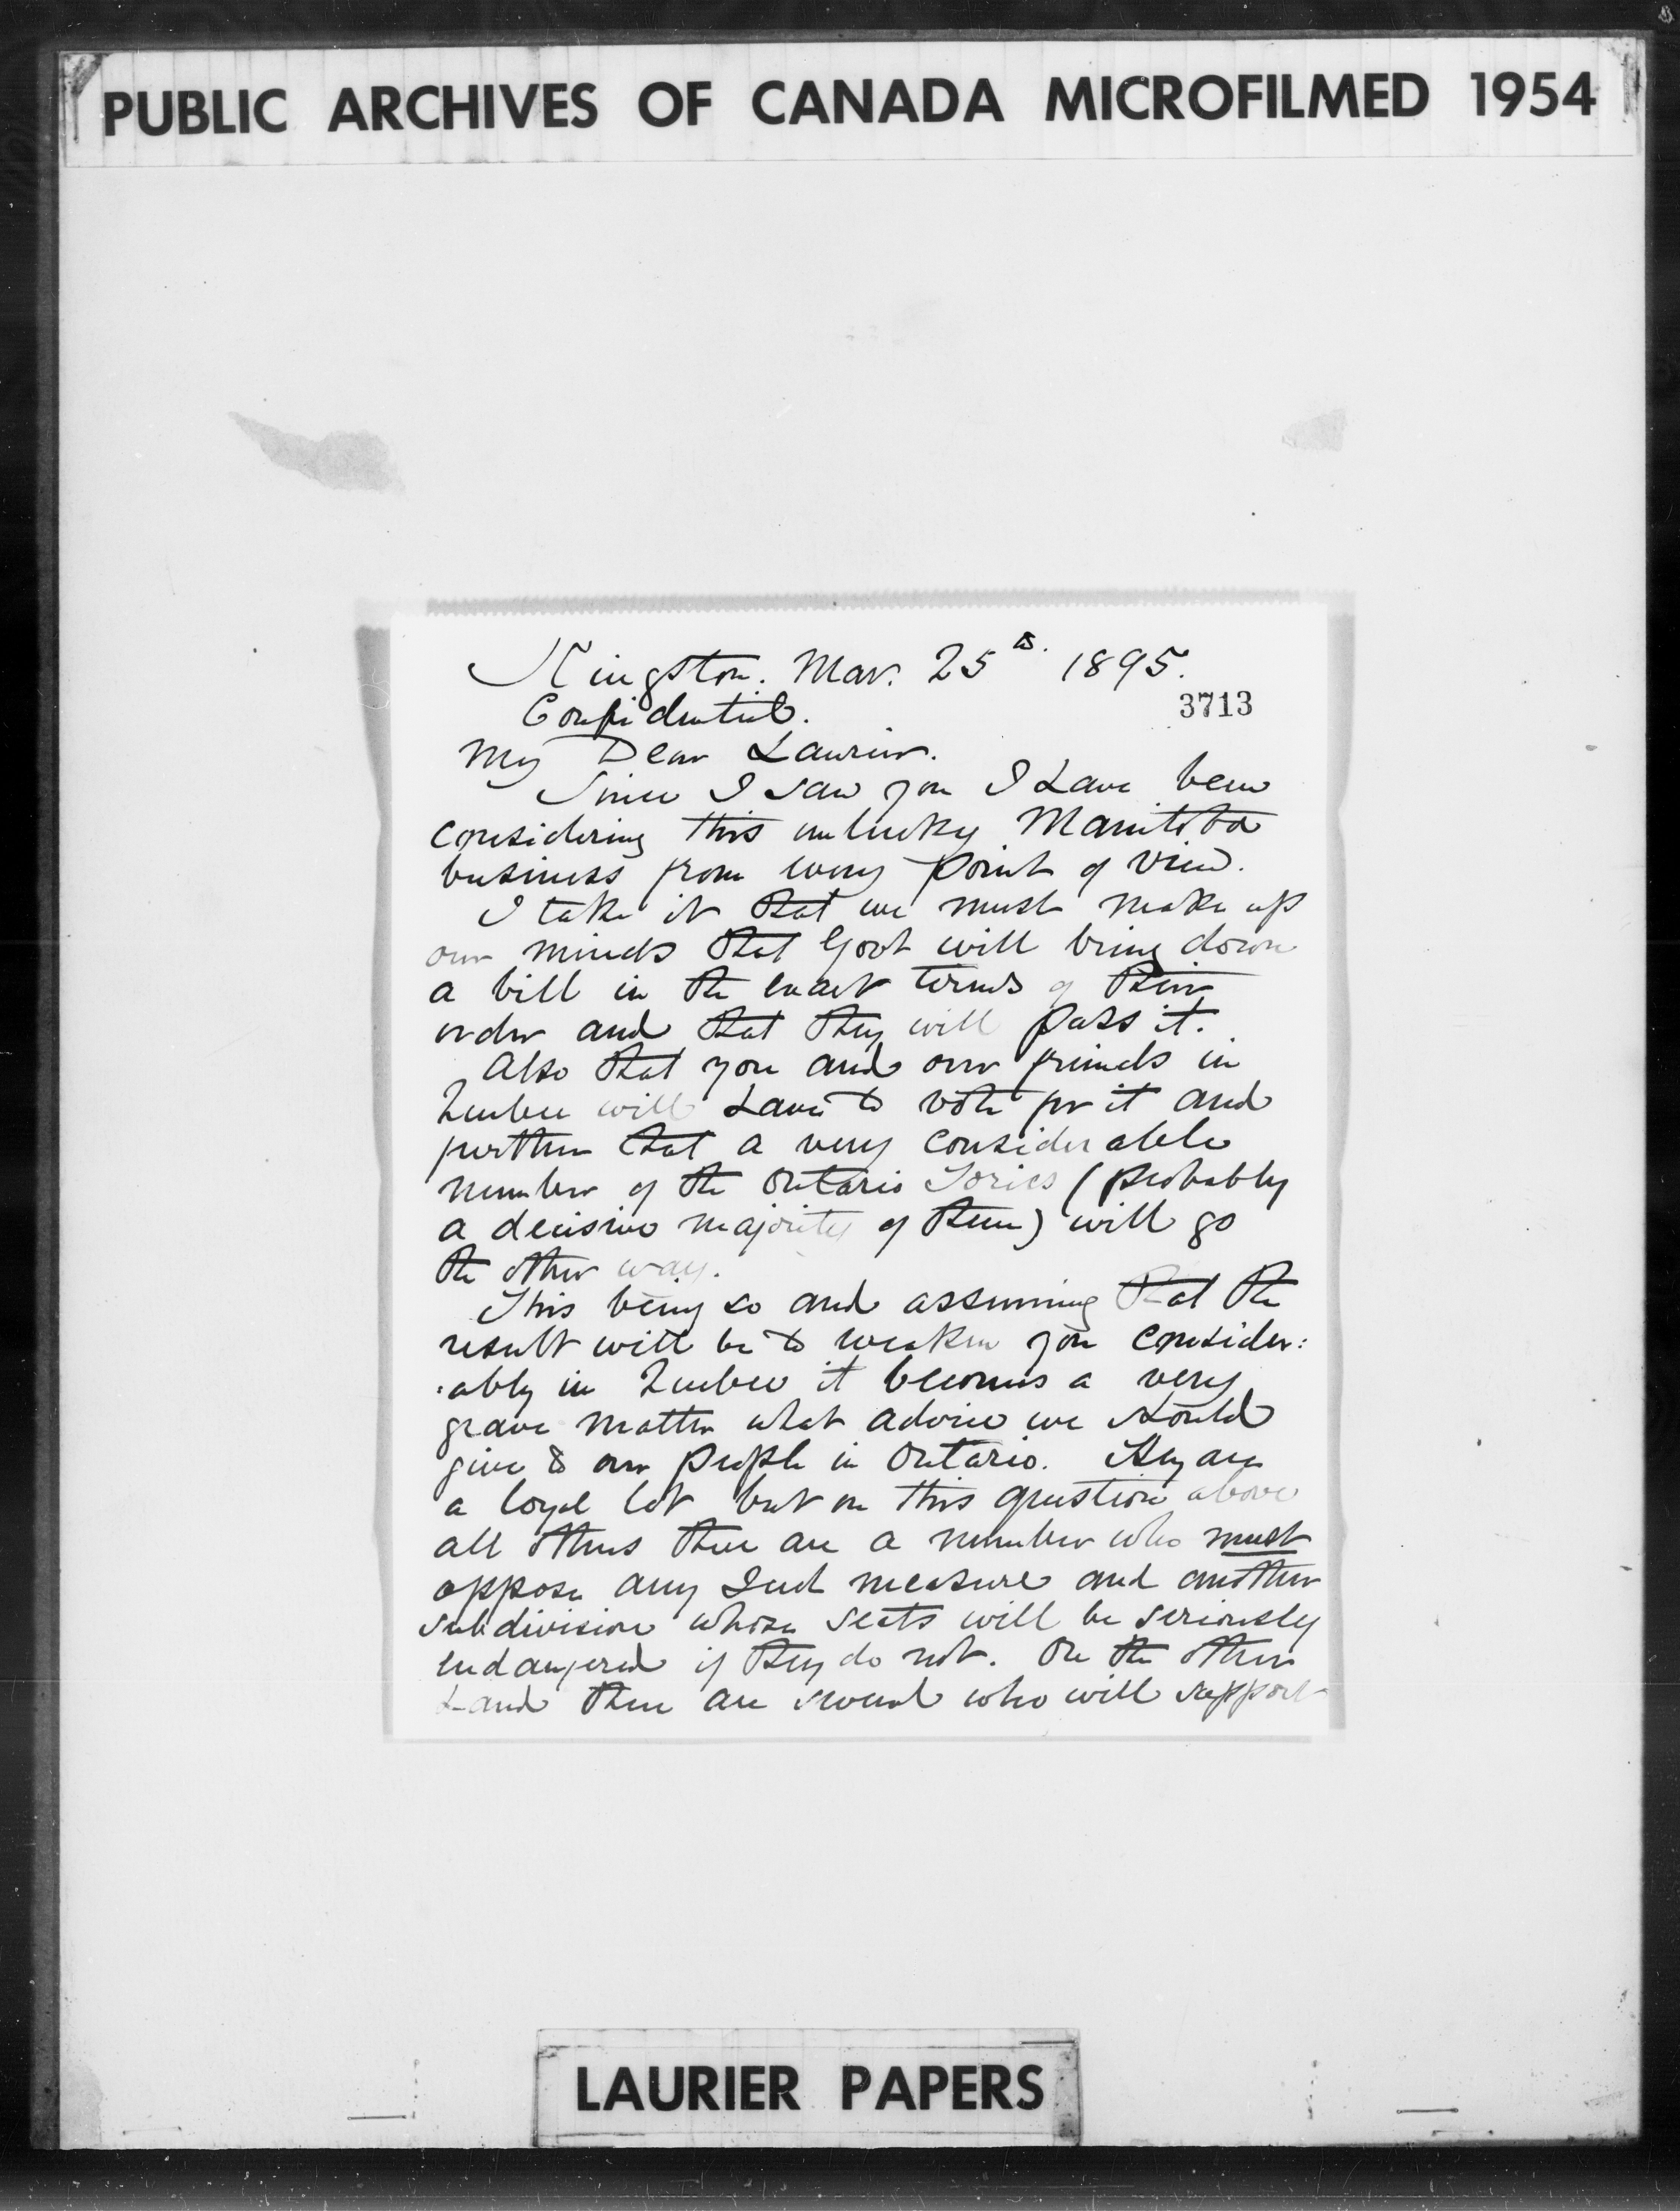 PUBLIC ARCHIVES OF CANADA MICROFILMED 1954
Kingston. Mar. 25th. 1895.
Confidential.
3713
My Dear Laurier.
Since I saw you I have been
considering this unlucky Manitoba
business from every point of view.
I take it that we must make up
our minds that Govt will bring down
a bill in the exact terms of their
order and that they will pass it.
Also that you and our friends in
Quebec will have to vote for it and
further that a very considerable
number of the Ontario Tories (probably
a decisive majority of them) will go
the other way.
This being so and assuming that the
result will be to weaken you consider:
:ably in Quebec it becomes a very
grave matter what advice we should
give to our people in Ontario. They are
a loyal lot but on this question above
all others there are a number who must
oppose any such measure and another
subdivision whose seats will be seriously
endangered if they do not. On the other
hand there are several who will support
LAURIER PAPERS